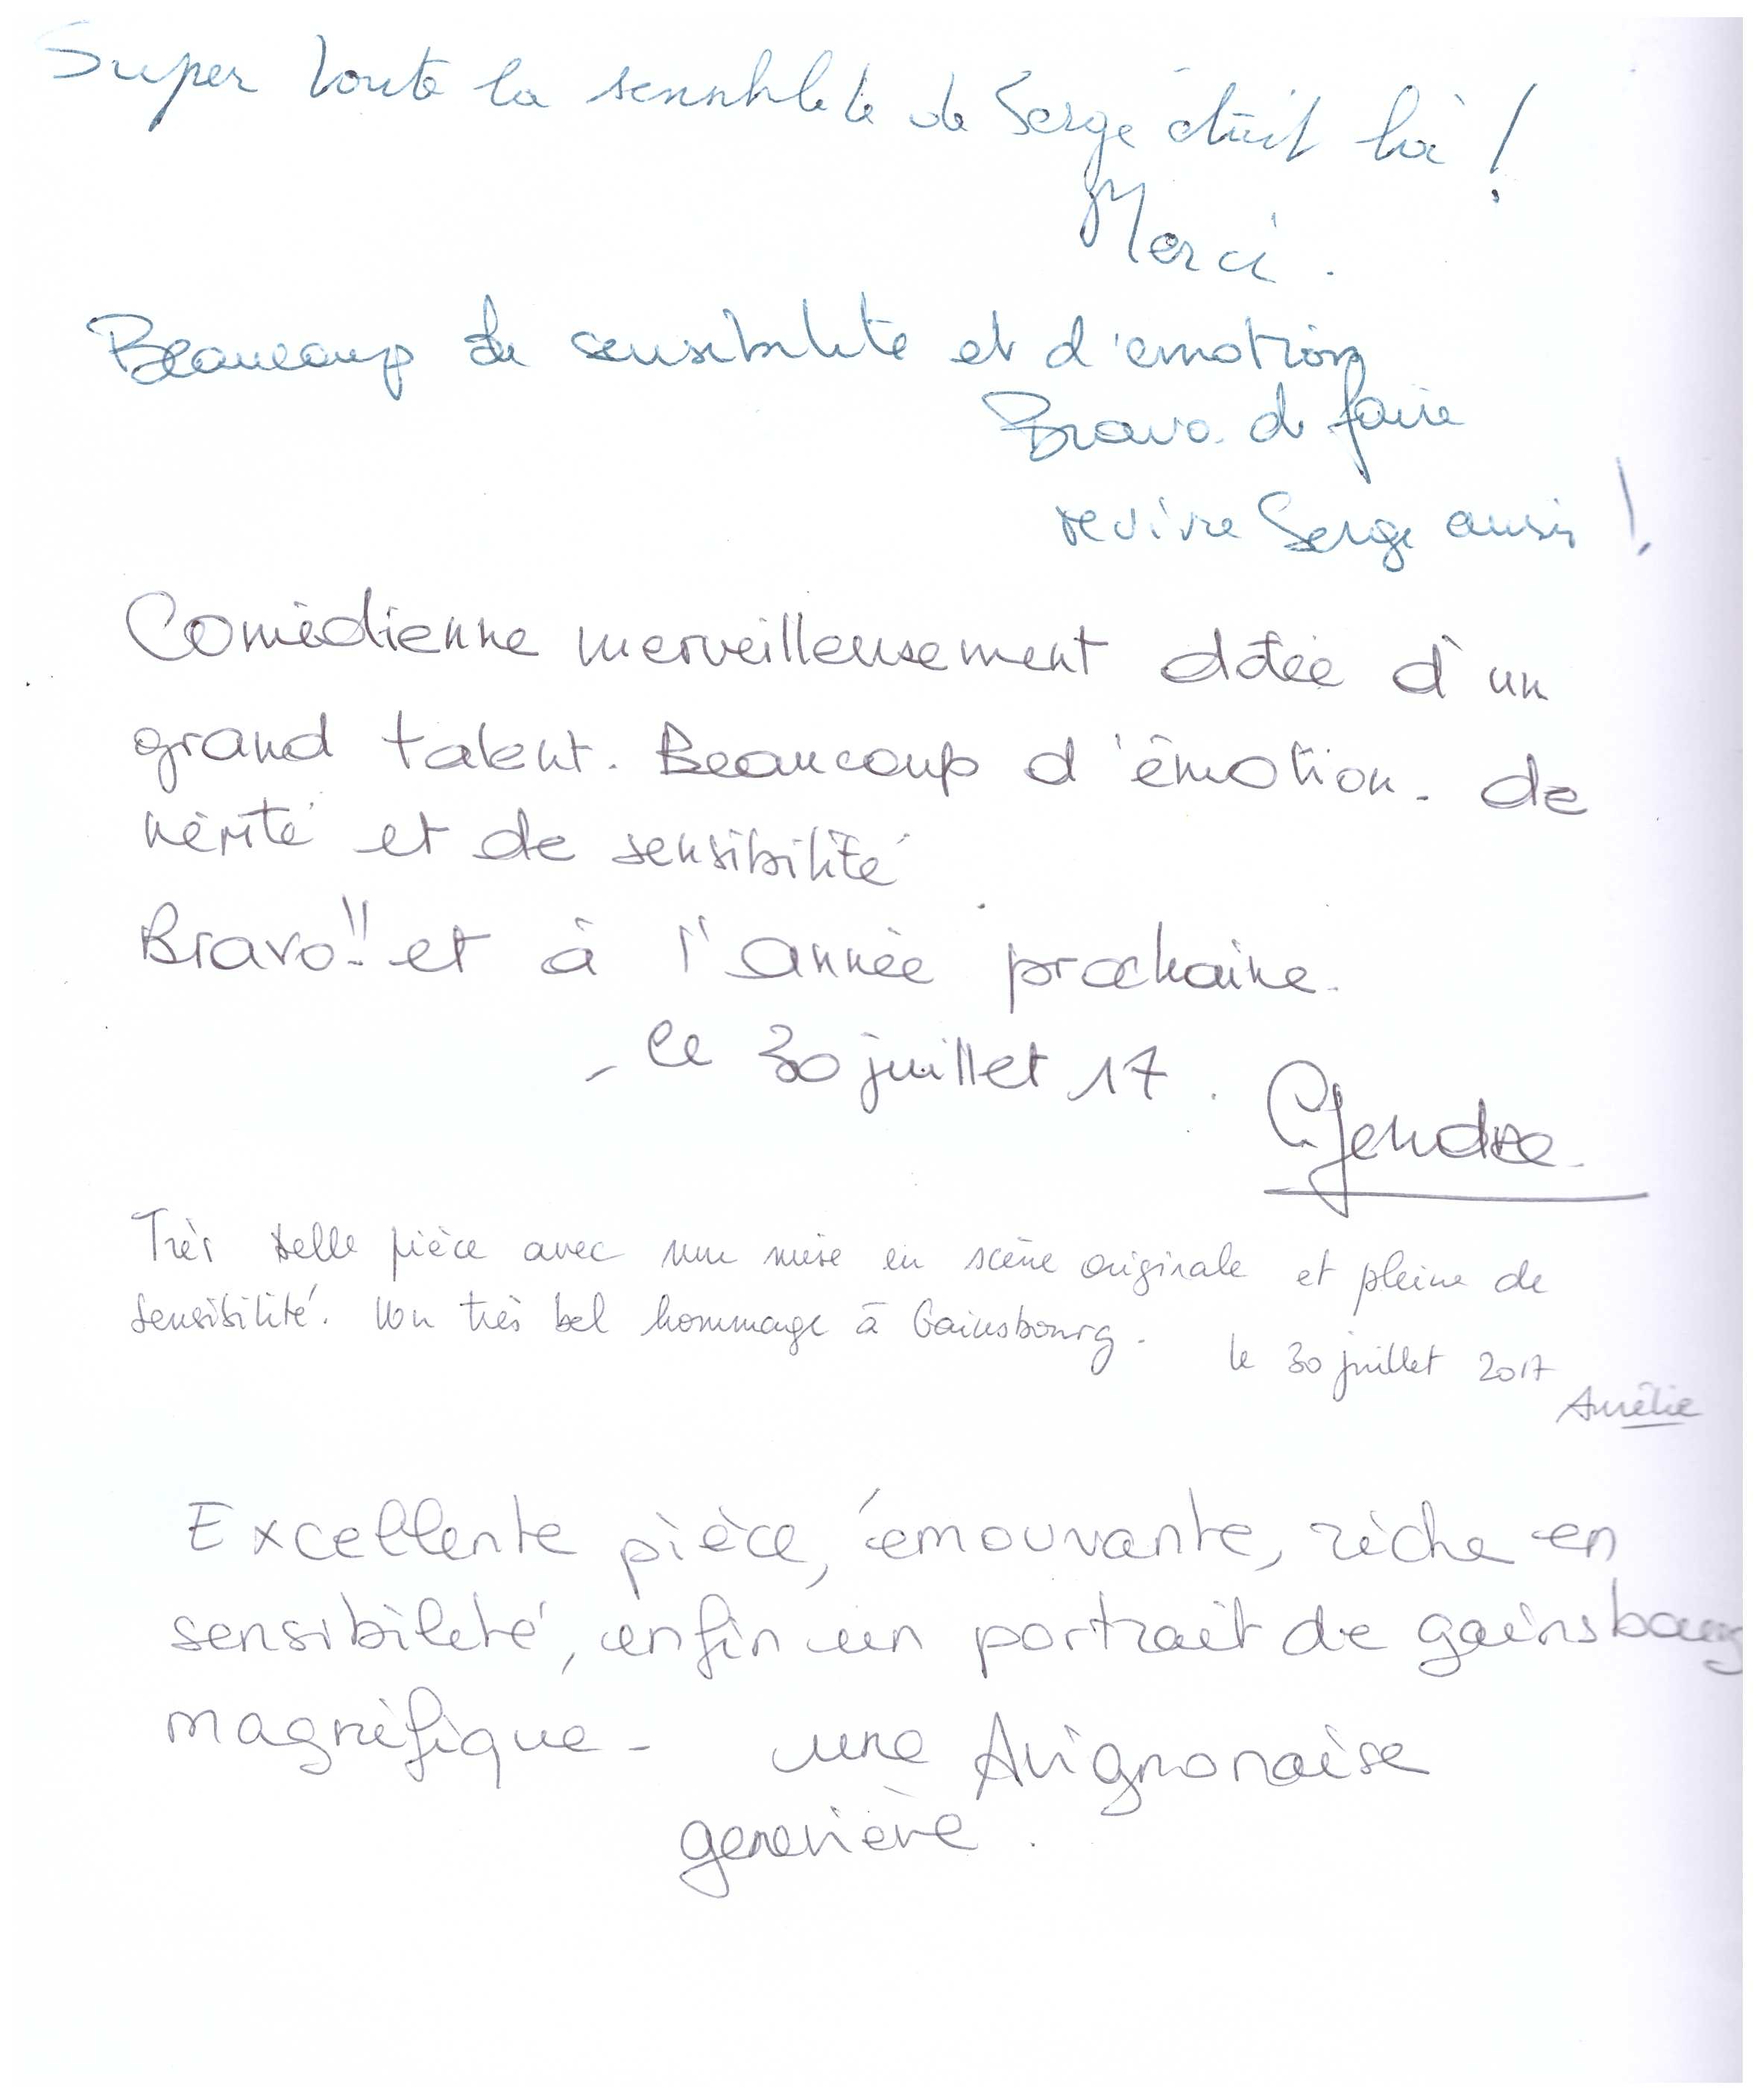 Super toute la sensiblité de Serge était là !
Merci.
Beaucoup de sensibilité et d'émotion
Bravo de faire
revivre Serge aussi !
Comédienne merveilleusement dotée d'un
grand talent. Beaucoup d'émotion. de
vérité et de sensibilité
Bravo!! et à l'année prochaine.
- le 30 juillet 17.
CGendre
Très belle pièce avec une mise en scène originale et pleine de
sensibilité. Un très bel hommage à Gainsbourg.
le 30 juillet 2017
Aurélie
Excellente pièce, émouvante, riche en
sensibilité, enfin un portrait de gainsbourg
magnifique - une Avignonaise
geneviève.